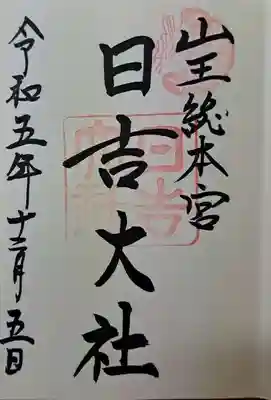 山王総本宮
日吉大社
令和五年十二月五日